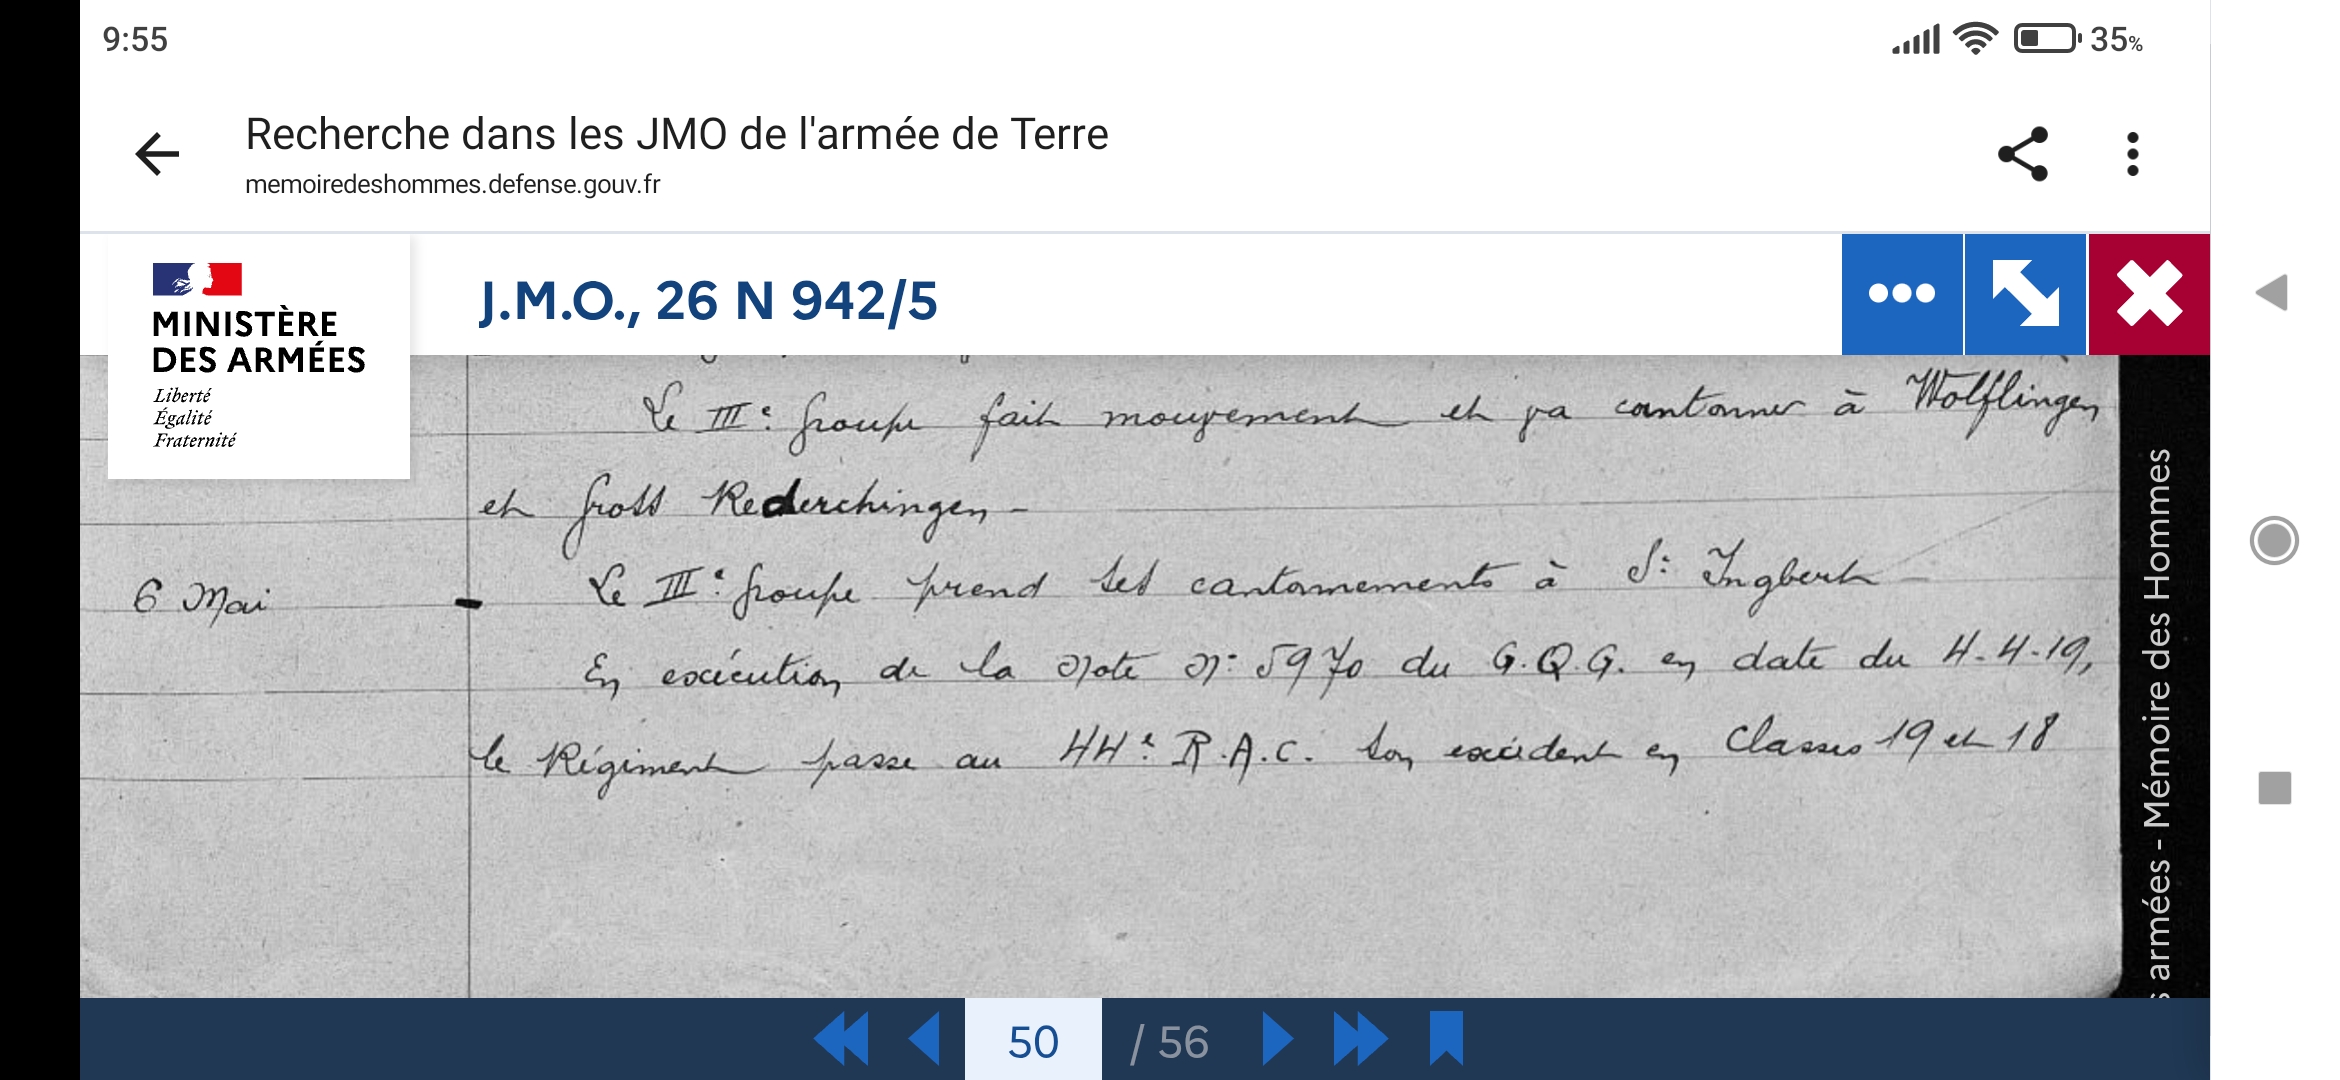 9:55
35%
Recherche dans les JMO de l'armée de Terre
memoiredeshommes.defense.gouv.fr
MINISTÈRE
DES ARMÉES
Liberté
Égalité
Fraternité
J.M.O., 26 N 942/5
Le IIIe groupe fait mouvement et va cantonner à Wölflingen
et Gross Rederchingen -
6 Mai - Le IIIe groupe prend ses cantonnements à St Ingbert -
En exécution de la Note No 5970 du G.Q.G. en date du 4-4-19,
le Régiment passe au 44e R.A.C. son excédent en Classes 19 et 18
armées - Mémoire des Hommes
50 / 56